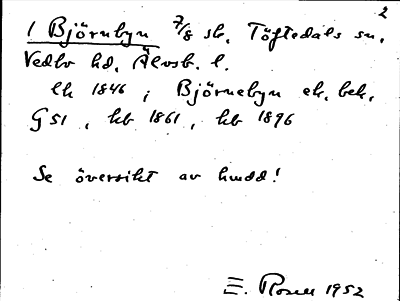 2
1 Björnbyn 7/8 sk. Töftedals sn.
Vedbo hd. Älvsb. l.
lk 1846 ; Björnebyn ek. bek.
G 51 , kb 1861 , kb 1896
Se översikt av huvud!
E. Rosell 1952